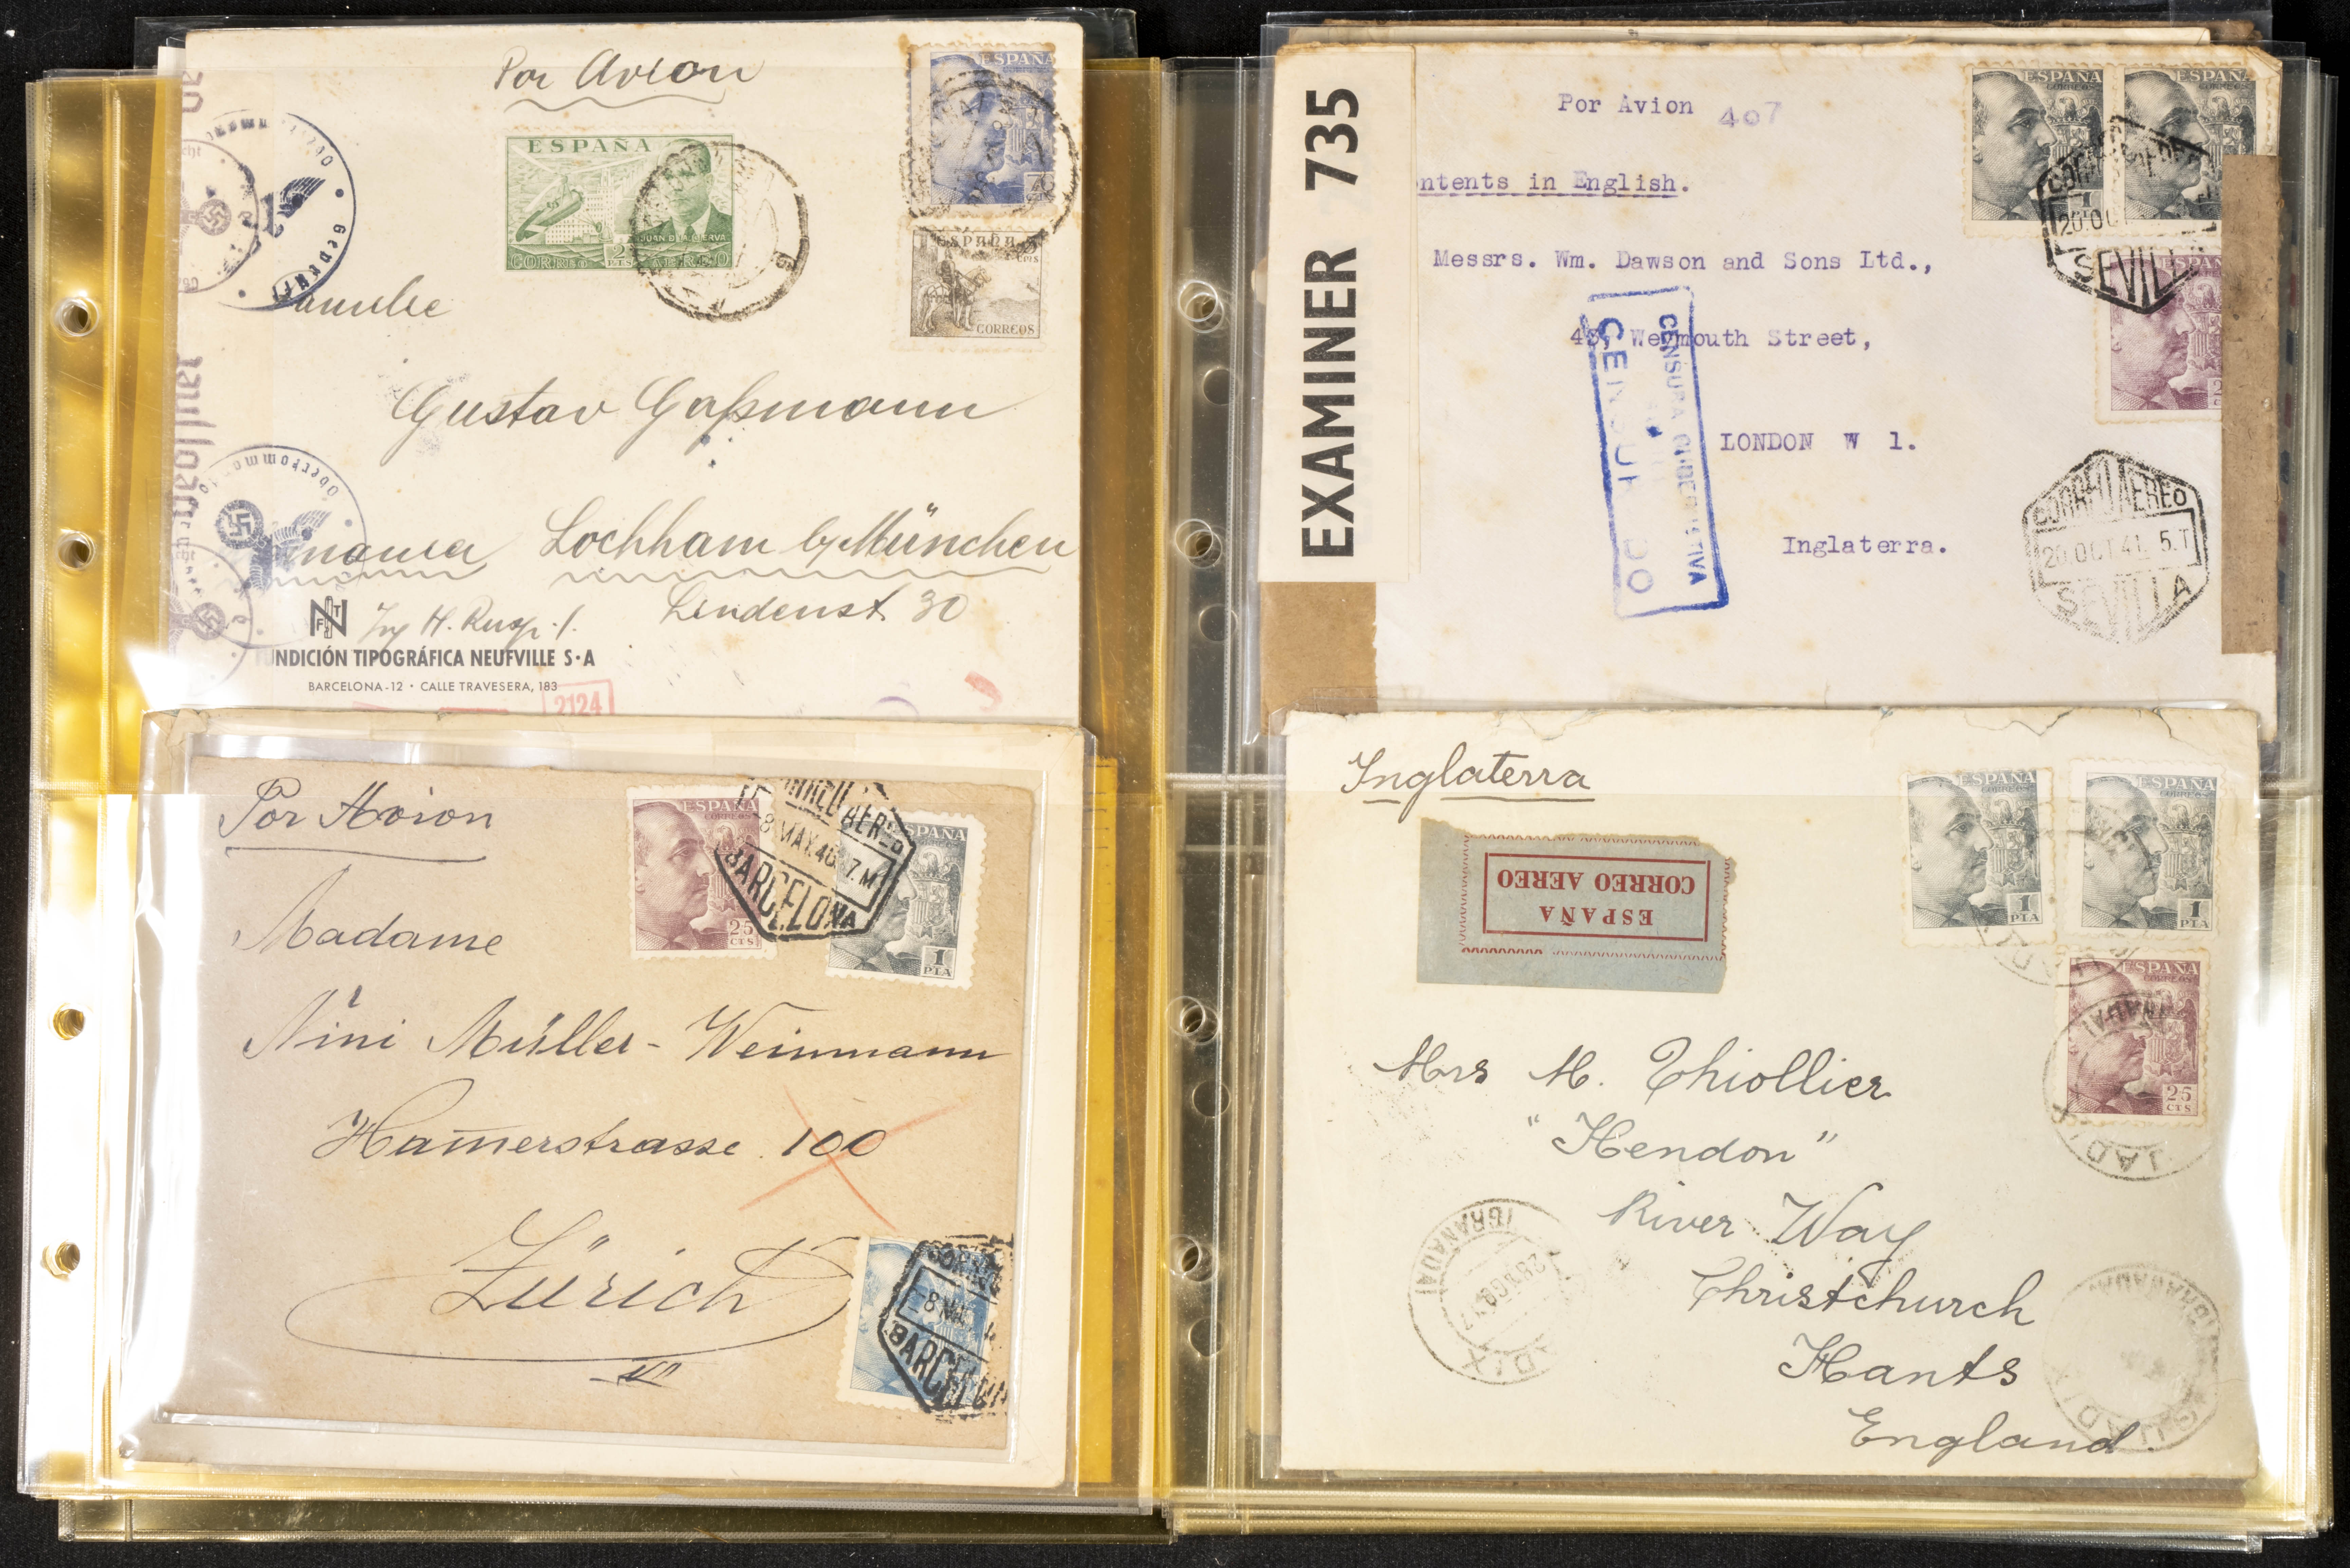 Por Avion
ESPAÑA
ESPAÑA
2 PTS
JUAN DE LA CIERVA
CORREO AEREO
ESPAÑA
5
CTS
CORREOS
Familie
Gustav Gaßmann
Lochham b/München
Lindenst. 30
2124
NDICIÓN TIPOGRÁFICA NEUFVILLE S·A
BARCELONA-12 · CALLE TRAVESERA, 183
EXAMINER 735
Por Avion
407
ntents in English.
Messrs. Wm. Dawson and Sons Ltd.,
Weymouth Street,
LONDON W 1.
Inglaterra.
CENSURA GUBERNATIVA
ESPAÑA
CORREOS
1
ESPAÑA
CORREOS
20.OCT
SEVILL
ESPAÑ
CORREO AEREO
20.OCT 41. 5.T
SEVILLA
Por Avion
Madame
Nini Müller - Weinmann
Hamerstrasse 100
Zürich
ESPAÑA
CORREOS
25
CTS
CORREO AEREO
8 MAY.40 7.M
BARCELONA
ESPAÑA
1
PTA
BARCELON
Inglaterra
ESPAÑA
CORREO AEREO
ESPAÑA
CORREOS
1
PTA
ESPAÑA
CORREOS
1
PTA
ESPAÑA
CORREOS
25
CTS
Mrs M. Thiollier
"Hendon"
River Way
Christchurch
Hants
England
(GRANADA)